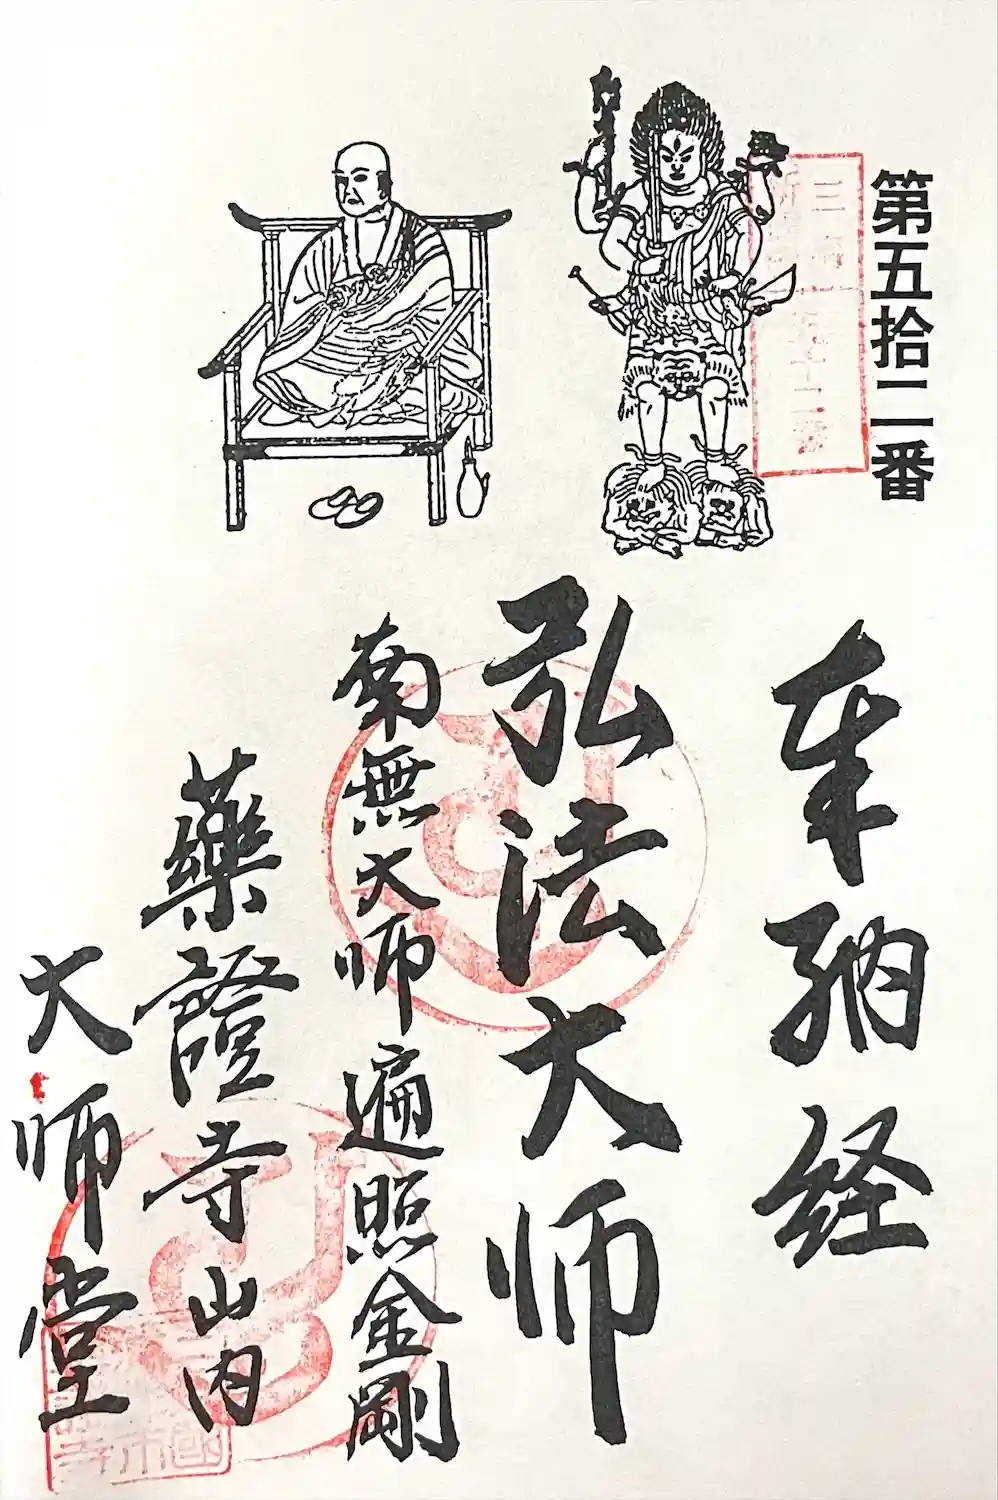 第五拾二番
奉納経
弘法大师
南無大师 遍照金剛
藥證寺山内
大师堂